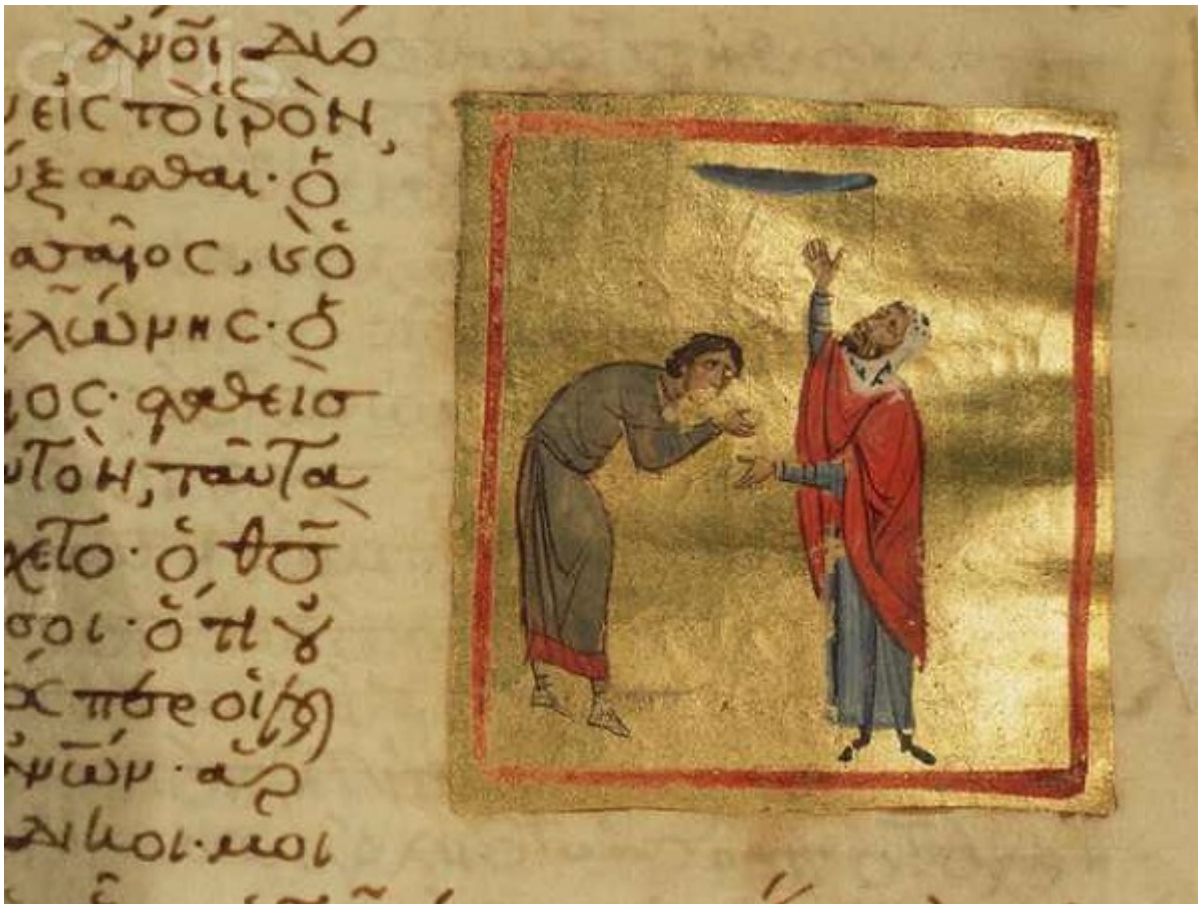 ἀνοι δύο
ν εἰς τὸ ἱερὸν,
ύξασθαι· ὁ
σαῖος, κὁ
ελώνης· ὁ
ῖος· σταθεὶσ
υτὸν, ταῦτα
χετο· ὁ θς
σοι· ὅτι οὐ
ὥσπερ οἱ
ἀνων· ἁρ
ἄδικοι· μοι
corbis